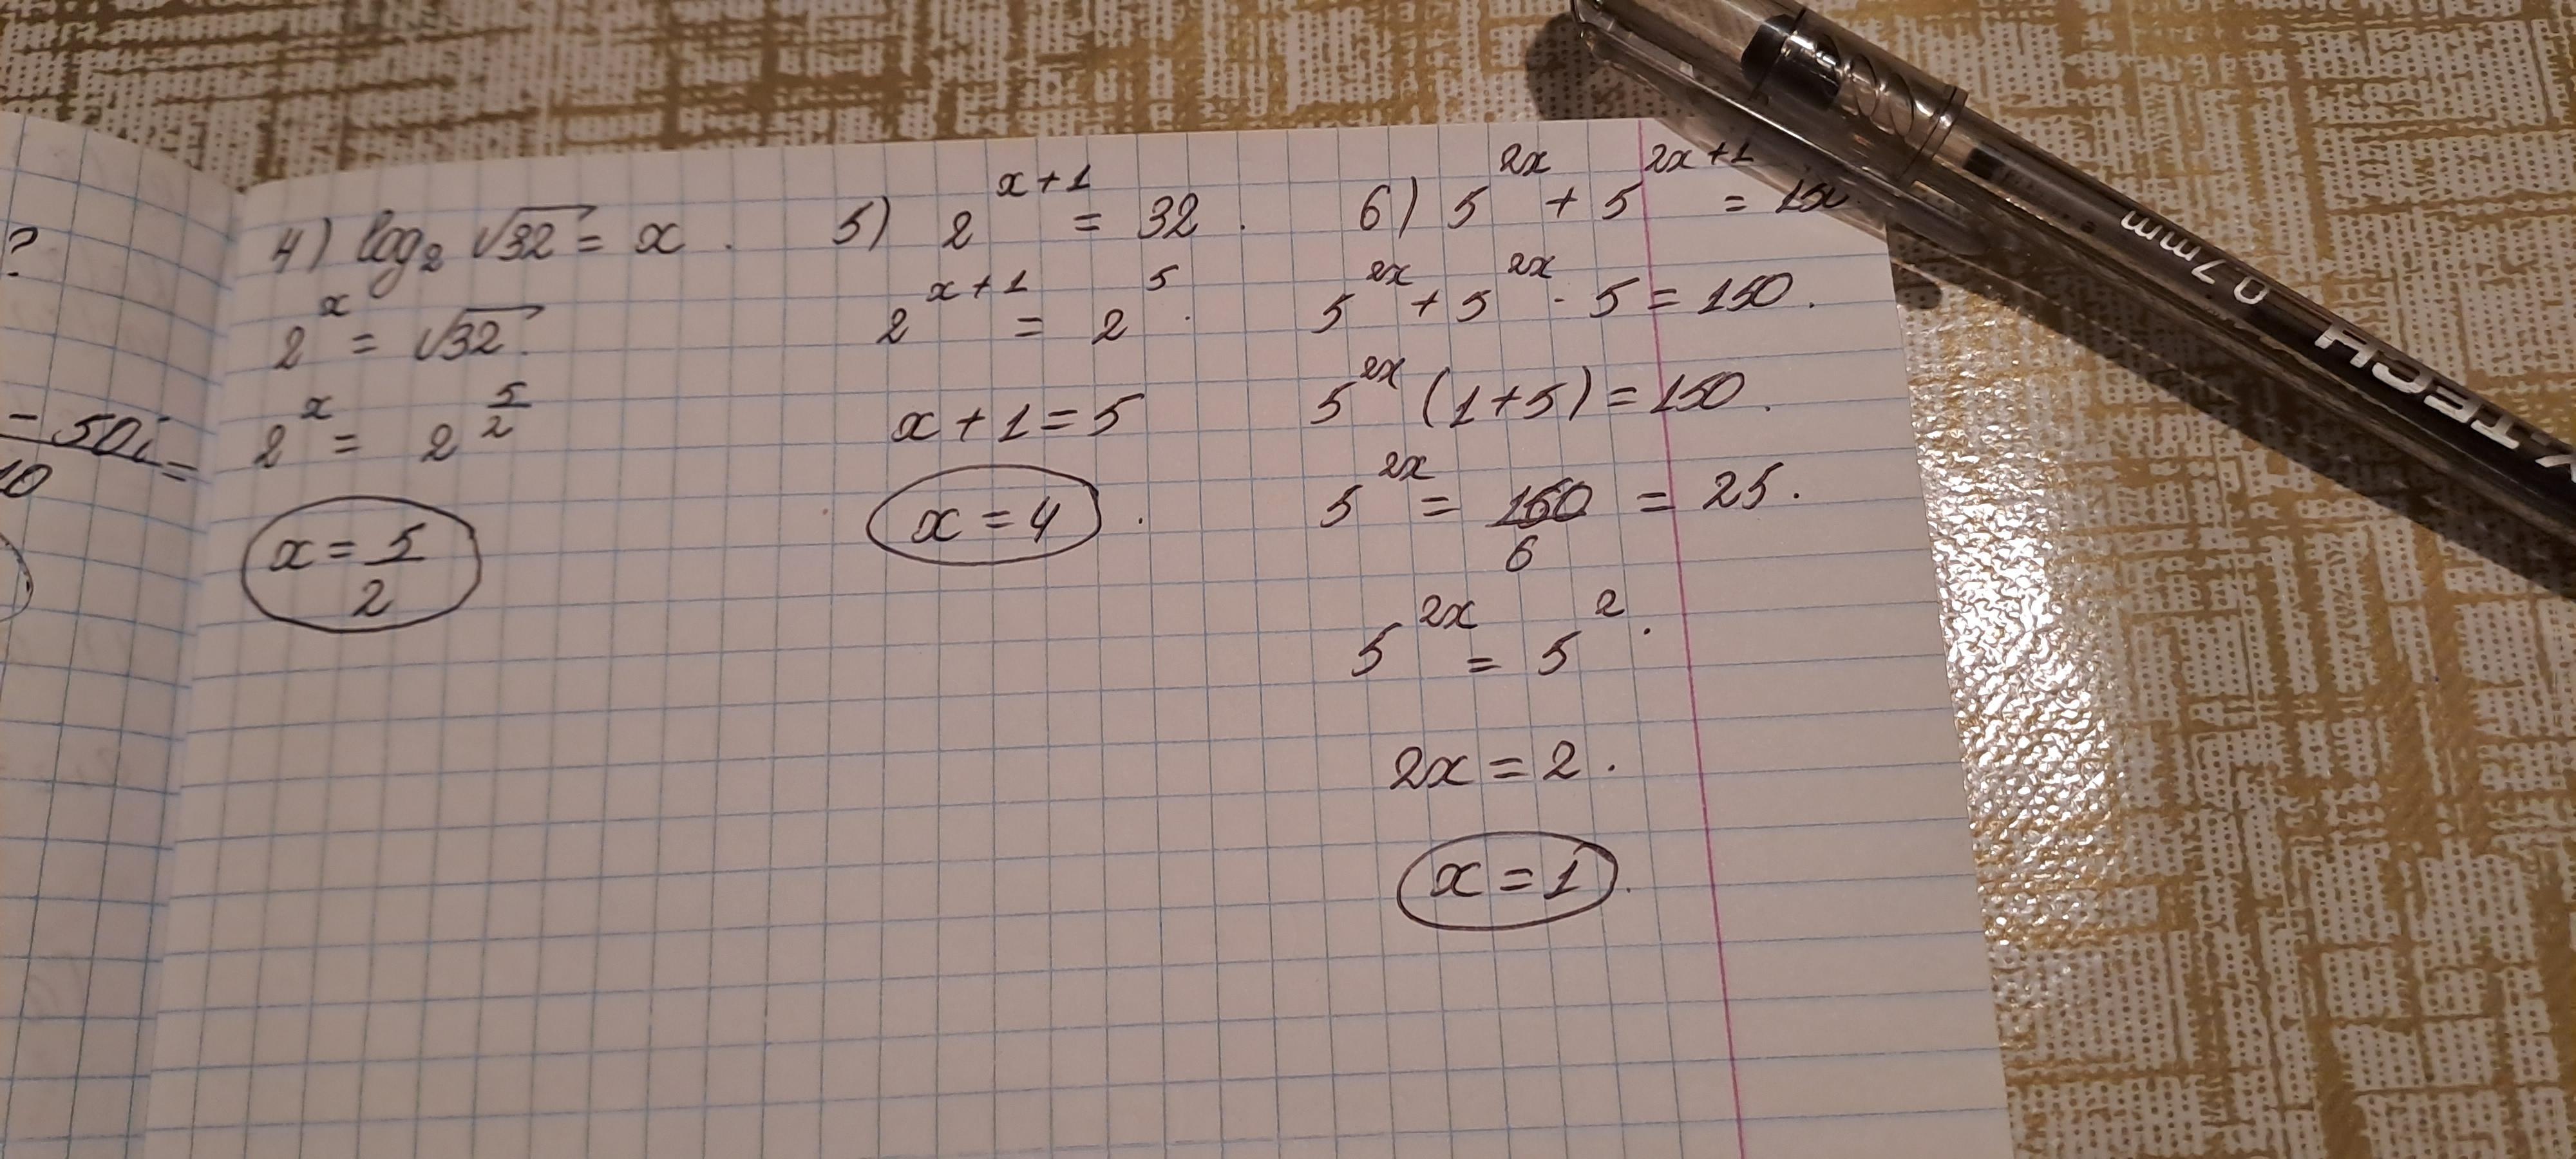 ?
- 50i =
10
4) log₂ √32 = x .
2^x = √32 .
2^x = 2^(5/2)
x = 5/2
5) 2^(x+1) = 32 .
2^(x+1) = 2^5 .
x + 1 = 5
x = 4 .
6) 5^(2x) + 5^(2x+1) = 150 .
5^(2x) + 5^(2x) · 5 = 150 .
5^(2x) (1+5) = 150 .
5^(2x) = 150/6 = 25 .
5^(2x) = 5^2 .
2x = 2 .
x = 1 .
0.7mm